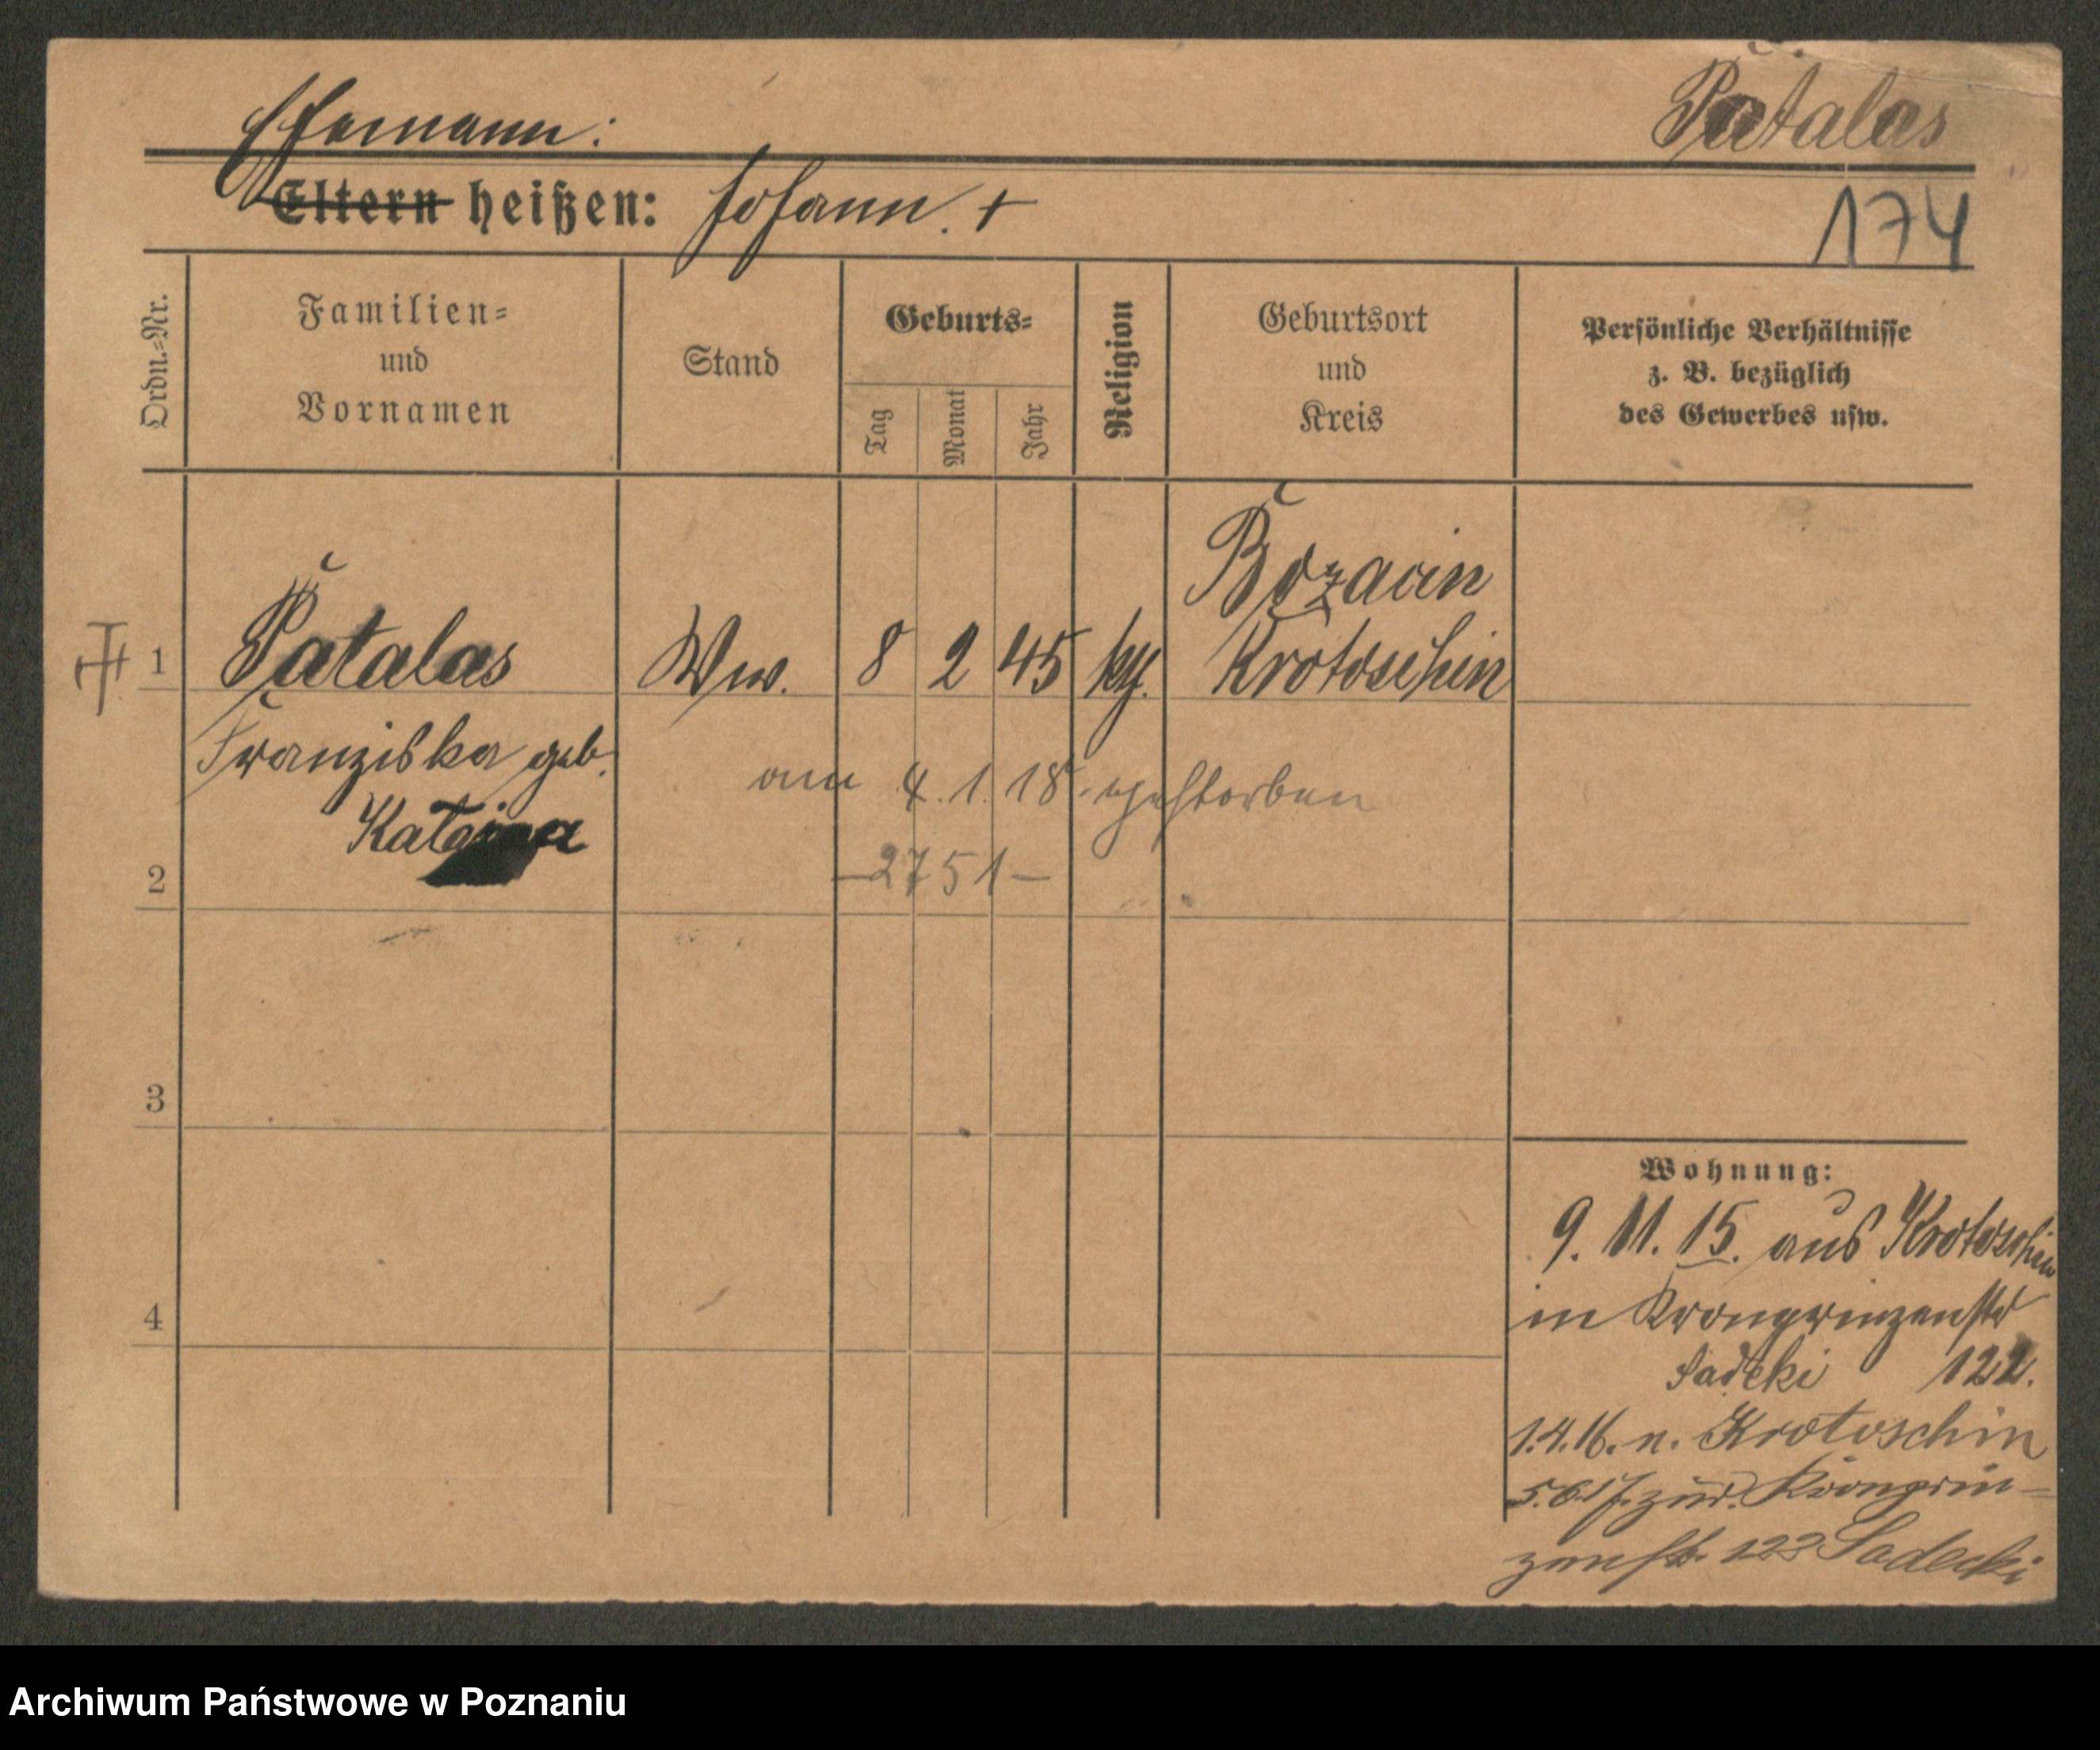 Patalas
Ehemann:
Eltern heißen: Johann. +
174
Ordn.-Nr.
Familien-
und
Vornamen
Stand
Geburts-
Tag
Monat
Jahr
Religion
Geburtsort
und
Kreis
Persönliche Verhältnisse
z. B. bezüglich
des Gewerbes usw.
Bozacin
1 Patalas Ww. 8 2 45 kth. Krotoschin
Franziska geb.
am 4. 1. 18. gestorben
2
-2751-
3
4
Wohnung:
9. 11. 15. aus Krotoschin
in Kronprinzenstr
Sadeki 122.
1.4.16. n. Krotoschin
5.6.17. zur. Kronprin-
zenstr. 122 Sadecki
Archiwum Państwowe w Poznaniu